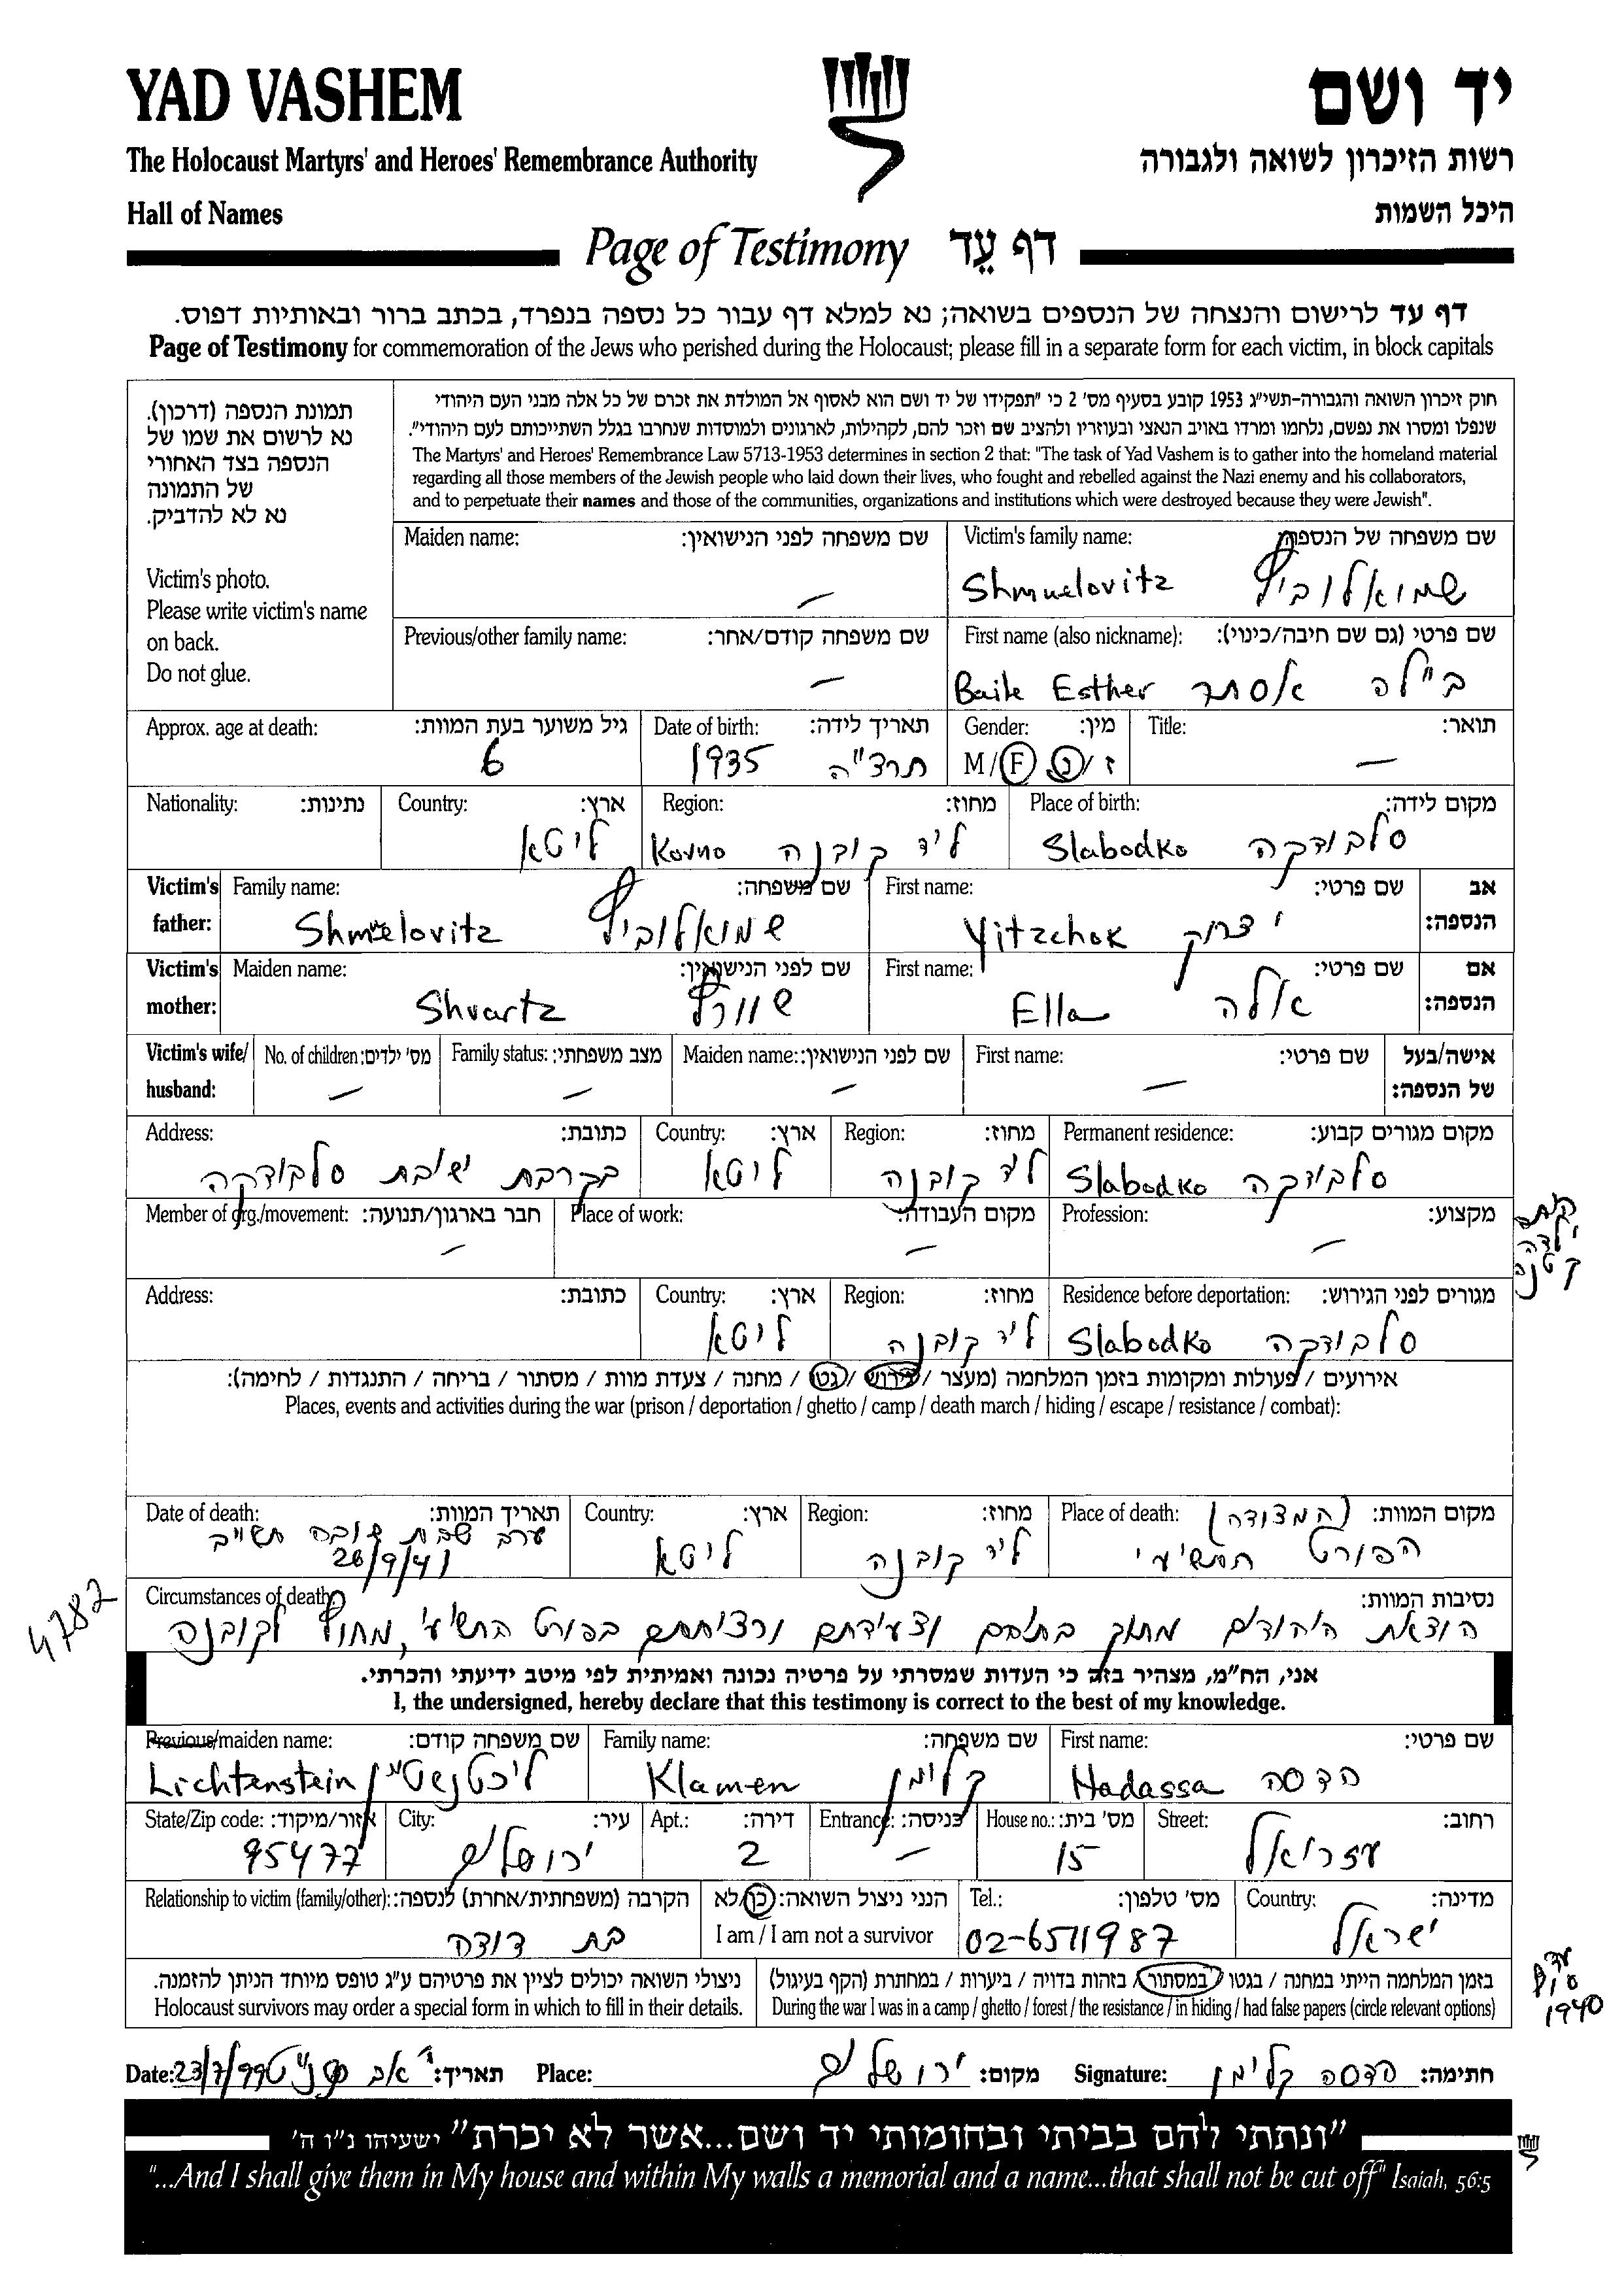 YAD VASHEM
יד ושם
The Holocaust Martyrs' and Heroes' Remembrance Authority
רשות הזיכרון לשואה ולגבורה
Hall of Names
היכל השמות
Page of Testimony דף עֵד
דף עד לרישום והנצחה של הנספים בשואה; נא למלא דף עבור כל נספה בנפרד, בכתב ברור ובאותיות דפוס.
Page of Testimony for commemoration of the Jews who perished during the Holocaust; please fill in a separate form for each victim, in block capitals
תמונת הנספה (דרכון).
נא לרשום את שמו של
הנספה בצד האחורי
של התמונה
נא לא להדביק.
Victim's photo.
Please write victim's name
on back.
Do not glue.
חוק זיכרון השואה והגבורה-תשי״ג 1953 קובע בסעיף מס׳ 2 כי ״תפקידו של יד ושם הוא לאסוף אל המולדת את זכרם של כל אלה מבני העם היהודי
שנפלו ומסרו את נפשם, נלחמו ומרדו באויב הנאצי ובעוזריו ולהציב שם וזכר להם, לקהילות, לארגונים ולמוסדות שנחרבו בגלל השתייכותם לעם היהודי״.
The Martyrs' and Heroes' Remembrance Law 5713-1953 determines in section 2 that: "The task of Yad Vashem is to gather into the homeland material
regarding all those members of the Jewish people who laid down their lives, who fought and rebelled against the Nazi enemy and his collaborators,
and to perpetuate their names and those of the communities, organizations and institutions which were destroyed because they were Jewish".
Maiden name: שם משפחה לפני הנישואין: Victim's family name: שם משפחה של הנספה:
— Shmuelovitz שמואלוביץ
Previous/other family name: שם משפחה קודם/אחר: First name (also nickname): שם פרטי (גם שם חיבה/כינוי):
— Baile Esther ביילה אסתר
Approx. age at death: גיל משוער בעת המוות: Date of birth: תאריך לידה: Gender: מין: Title: תואר:
6 1935 תרצ"ה M/F ז/נ —
Nationality: נתינות: Country: ארץ: Region: מחוז: Place of birth: מקום לידה:
ליטא Kovno ליד קובנה Slabodko סלבודקה
Victim's father: Family name: שם משפחה: First name: שם פרטי: אב הנספה:
Shmuelovitz שמואלוביץ Yitzchok יצחק
Victim's mother: Maiden name: שם לפני הנישואין: First name: שם פרטי: אם הנספה:
Shvartz שוורץ Ella אלה
Victim's wife/husband: No. of children: מס׳ ילדים: Family status: מצב משפחתי: Maiden name: שם לפני הנישואין: First name: שם פרטי: אישה/בעל של הנספה:
— — — —
Address: כתובת: Country: ארץ: Region: מחוז: Permanent residence: מקום מגורים קבוע:
בקרבת ישיבת סלבודקה ליטא ליד קובנה Slabodko סלבודקה
Member of org./movement: חבר בארגון/תנועה: Place of work: מקום העבודה: Profession: מקצוע:
— — —
ילדה
קטנה
Address: כתובת: Country: ארץ: Region: מחוז: Residence before deportation: מגורים לפני הגירוש:
ליטא ליד קובנה Slabodko סלבודקה
אירועים / פעולות ומקומות בזמן המלחמה (מעצר / גירוש / גטו / מחנה / צעדת מוות / מסתור / בריחה / התנגדות / לחימה):
Places, events and activities during the war (prison / deportation / ghetto / camp / death march / hiding / escape / resistance / combat):
Date of death: תאריך המוות: Country: ארץ: Region: מחוז: Place of death: מקום המוות: (המצודה)
ערב שבת שובה תש"ב
26/9/41 ליטא ליד קובנה הפורט התשיעי
Circumstances of death: נסיבות המוות:
הוצאת היהודים מתוך בתיהם וצעידתם ורציחתם בפורט התשיעי, מחוץ לקובנה
4782
אני, הח״מ, מצהיר בזה כי העדות שמסרתי על פרטיה נכונה ואמיתית לפי מיטב ידיעתי והכרתי.
I, the undersigned, hereby declare that this testimony is correct to the best of my knowledge.
Previous/maiden name: שם משפחה קודם: Family name: שם משפחה: First name: שם פרטי:
Lichtenstein ליכטנשטיין Klamen קלימן Hadassa הדסה
State/Zip code: אזור/מיקוד: City: עיר: Apt.: דירה: Entrance: כניסה: House no.: מס׳ בית: Street: רחוב:
95477 ירושלים 2 — 15 עזריאל
Relationship to victim (family/other): הקרבה (משפחתית/אחרת) לנספה: הנני ניצול השואה: כן/לא Tel.: מס׳ טלפון: Country: מדינה:
בת דודה I am / I am not a survivor 02-6511987 ישראל
ניצולי השואה יכולים לציין את פרטיהם ע״ג טופס מיוחד הניתן להזמנה. בזמן המלחמה הייתי במחנה / בגטו / במסתור / בזהות בדויה / ביערות / במחתרת (הקף בעיגול)
Holocaust survivors may order a special form in which to fill in their details. During the war I was in a camp / ghetto / forest / the resistance / in hiding / had false papers (circle relevant options)
עד
סוף
1940
Date: 23/7/99 י' אב תשנ"ט תאריך: Place: ירושלים מקום: Signature: הדסה קלימן חתימה:
״ונתתי להם בביתי ובחומותי יד ושם...אשר לא יכרת״ ישעיהו נ״ו ה׳
"...And I shall give them in My house and within My walls a memorial and a name...that shall not be cut off" Isaiah, 56:5